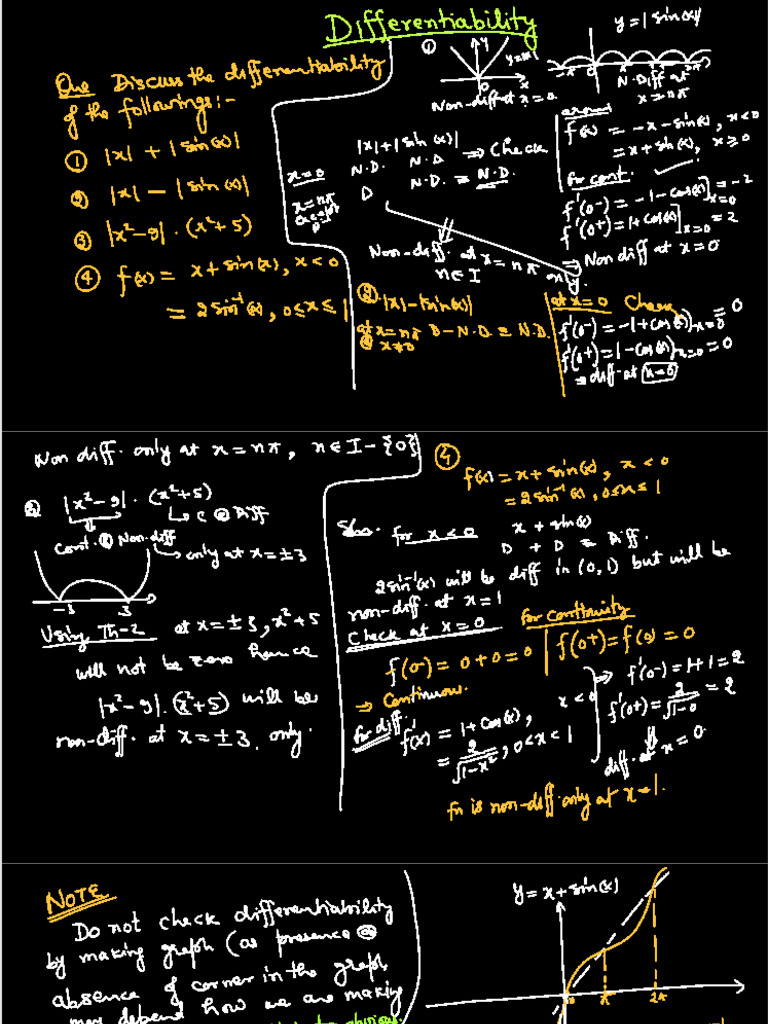 Differentiability
Que Discuss the differentiability
of the followings:-
① |x| + |sin(x)|
② |x| - |sin(x)|
③ |x²-9| · (x²+5)
④ f(x) = x + sin(x), x < 0
= 2sin⁻¹(x), 0 ≤ x ≤ 1
① y
y=|x|
0 x
Non-diff at x = 0
y = | sin(x)|
-π 0 π 2π
N.Diff at
x = nπ
|x| + |sin(x)|
x=0 N.D. N.D. ⇒ Check
x=nπ D N.D. = N.D.
except
0
Non-diff. at x = nπ only.
n ∈ I
around
f(x) = -x - sin(x), x<0
= x + sin(x), x ≥ 0
for cont.
f'(0⁻) = -1 - cos(x)]x=0 = -2
f'(0⁺) = 1 + cos(x)]x=0 = 2
⇒ Non diff at x = 0
② |x| - |sin(x)|
at x = nπ D - N.D. = N.D.
x ≠ 0
at x = 0 Check
f'(0⁻) = -1 + cos(x))x=0 = 0
f'(0⁺) = 1 - cos(x))x=0 = 0
⇒ diff. at x=0
Non diff. only at x = nπ, n ∈ I - {0}
③ |x²-9| · (x²+5)
↳ C Diff
Cont. Non-diff
↳ only at x = ±3
-3 3
Using Th-2 at x = ±3, x²+5
will not be zero hence
|x²-9|. (x²+5) will be
non-diff. at x = ±3. only.
④ f(x) = x + sin(x), x < 0
= 2sin⁻¹(x), 0 ≤ x ≤ 1
Soln. for x < 0 x + sin(x)
D + D = Diff.
2sin⁻¹(x) will be diff in (0,1) but will be
non-diff. at x = 1
Check at x = 0 for continuity
f(0⁻) = 0 + 0 = 0 | f(0⁺) = f(0) = 0
⇒ Continuous.
for diff. f'(x) = 1 + cos(x), x < 0
= 2/√(1-x²), 0 < x < 1
⇒ f'(0⁻) = 1 + 1 = 2
f'(0⁺) = 2/√(1-0) = 2
⇓
diff. at x = 0
fn is non-diff. only at x = 1.
NOTE
Do not check differentiability
by making graph (as presence
absence of corner in the graph
may depend how we are making
y = x + sin(x)
0 π 2π